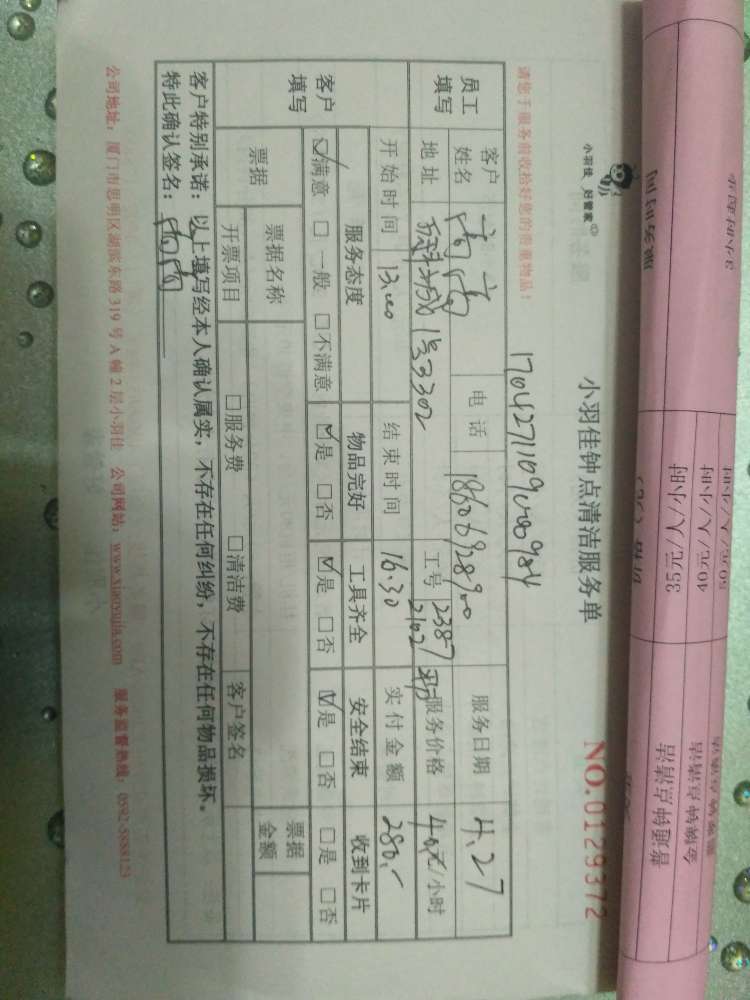 小羽佳 好管家
小羽佳钟点清洁服务单
NO.0129372
请您于服务前收拾好您的贵重物品!
170427110900000984
员工填写
客户姓名
高
电话
18606928900
服务日期
4.27
地址
1号3302
工号
2387
2102
服务价格
40元/小时
开始时间
13:00
结束时间
16:30
实付金额
280.-
客户填写
服务态度
物品完好
工具齐全
安全结束
收到卡片
☑满意 □一般 □不满意
☑是 □否
☑是 □否
☑是 □否
□是 □否
票据
票据名称
票据金额
开票项目
□服务费 □清洁费
客户签名
客户特别承诺:以上填写经本人确认属实,不存在任何纠纷,不存在任何物品损坏。
特此确认签名:
公司地址:厦门市思明区湖滨东路 319 号 A 幢 2 层小羽佳 公司网站:www.xiaoyujia.com 服务监督热线:0592-5888125
40元/人/小时
35元/人/小时
普通钟点清洁